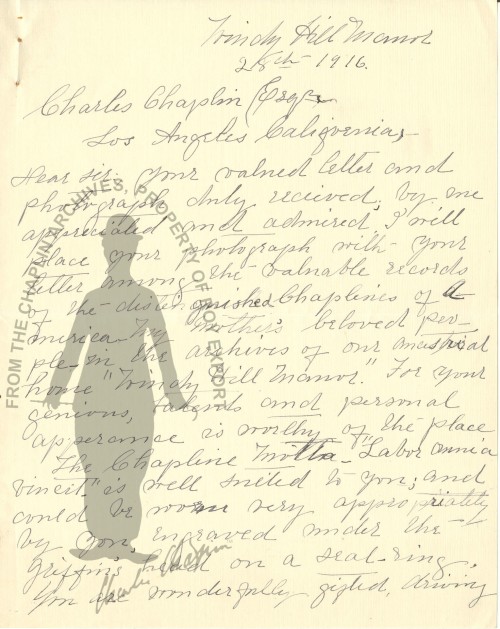 Windy Hill Manor
28th 1916.
Charles Chaplin Esqr
Los Angeles California,
Dear sir your valued letter and
photograph duly received, by me
appreciated and admired. I will
place your photograph with your
letter among the valuable records
of the distinguished Chaplines of A
merica my mother's beloved peo-
ple in the archives of our ancestral
home "Windy Hill Manor." For your
genious, talents and personal
apperance is worthy of the place
The Chapline Motto "Labor omnia
vincit" is well suited to you; and
could be worn very appropriately
by you, engraved under the
Griffin's head on a seal-ring.
You are wonderfully gifted, driving
FROM THE CHAPLIN ARCHIVES, PROPERTY OF ROY EXPORT
Charles Chaplin